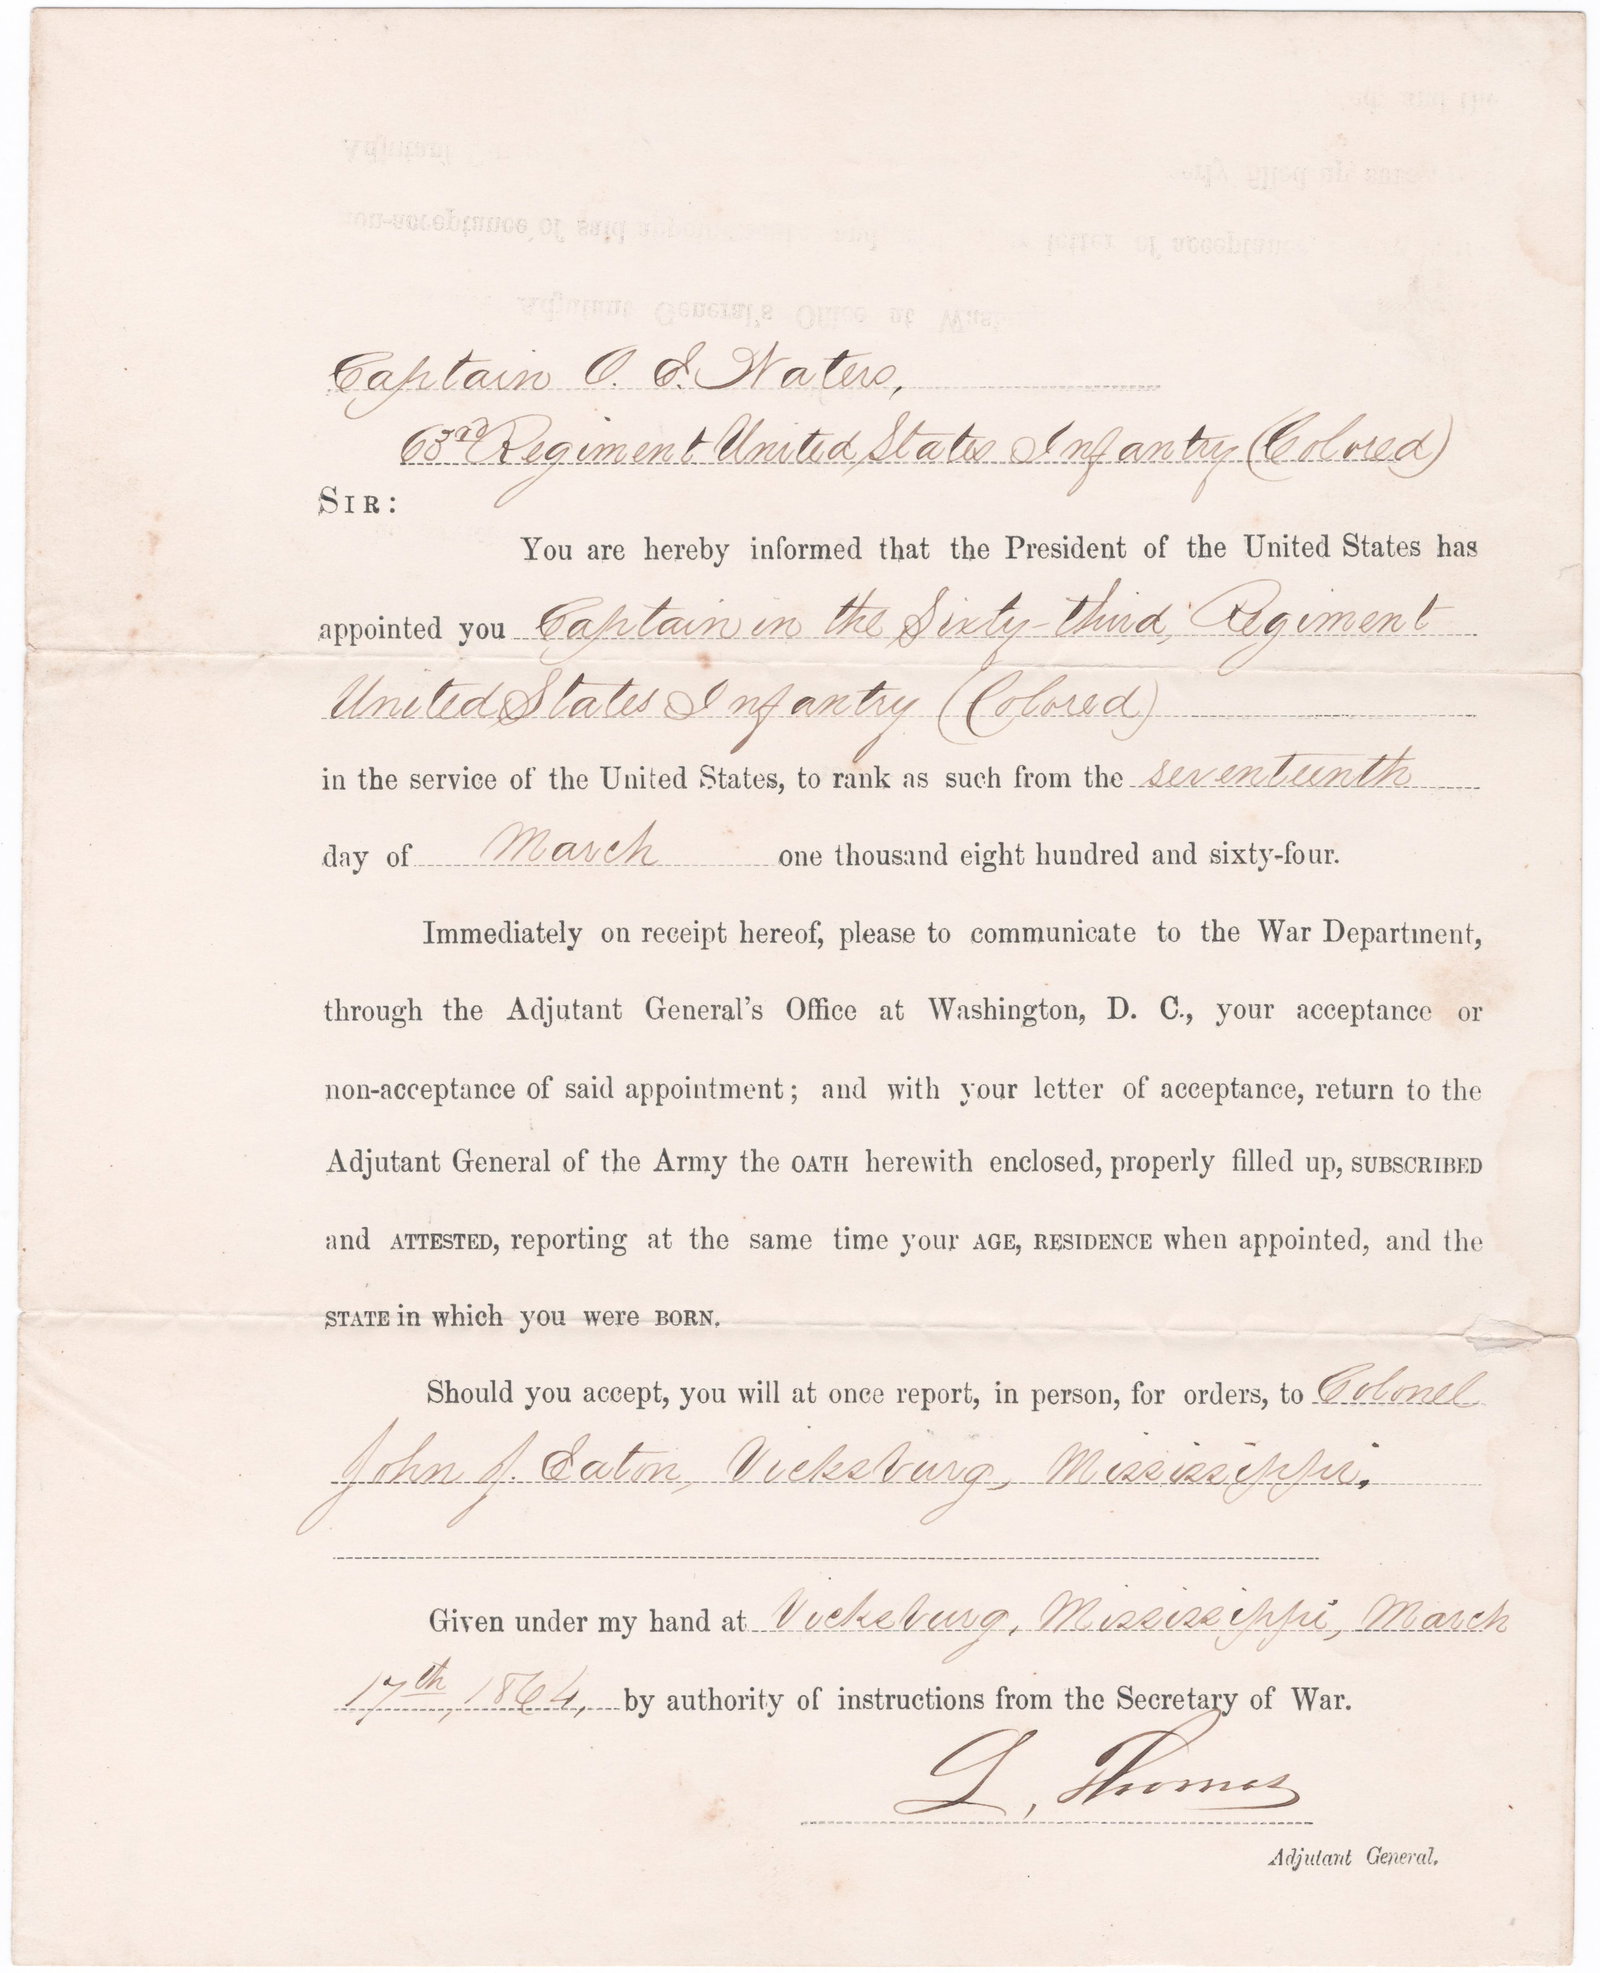 Captain O. E. Waters,
63rd Regiment United States Infantry (Colored)
SIR:
You are hereby informed that the President of the United States has
appointed you Captain in the Sixty-third, Regiment
United States Infantry (Colored)
in the service of the United States, to rank as such from the seventeenth
day of March one thousand eight hundred and sixty-four.
Immediately on receipt hereof, please to communicate to the War Department,
through the Adjutant General's Office at Washington, D. C., your acceptance or
non-acceptance of said appointment; and with your letter of acceptance, return to the
Adjutant General of the Army the OATH herewith enclosed, properly filled up, SUBSCRIBED
and ATTESTED, reporting at the same time your AGE, RESIDENCE when appointed, and the
STATE in which you were BORN.
Should you accept, you will at once report, in person, for orders, to Colonel
John J. Eaton, Vicksburg, Mississippi.
Given under my hand at Vicksburg, Mississippi, March
17th, 1864, by authority of instructions from the Secretary of War.
L. Thomas
Adjutant General.